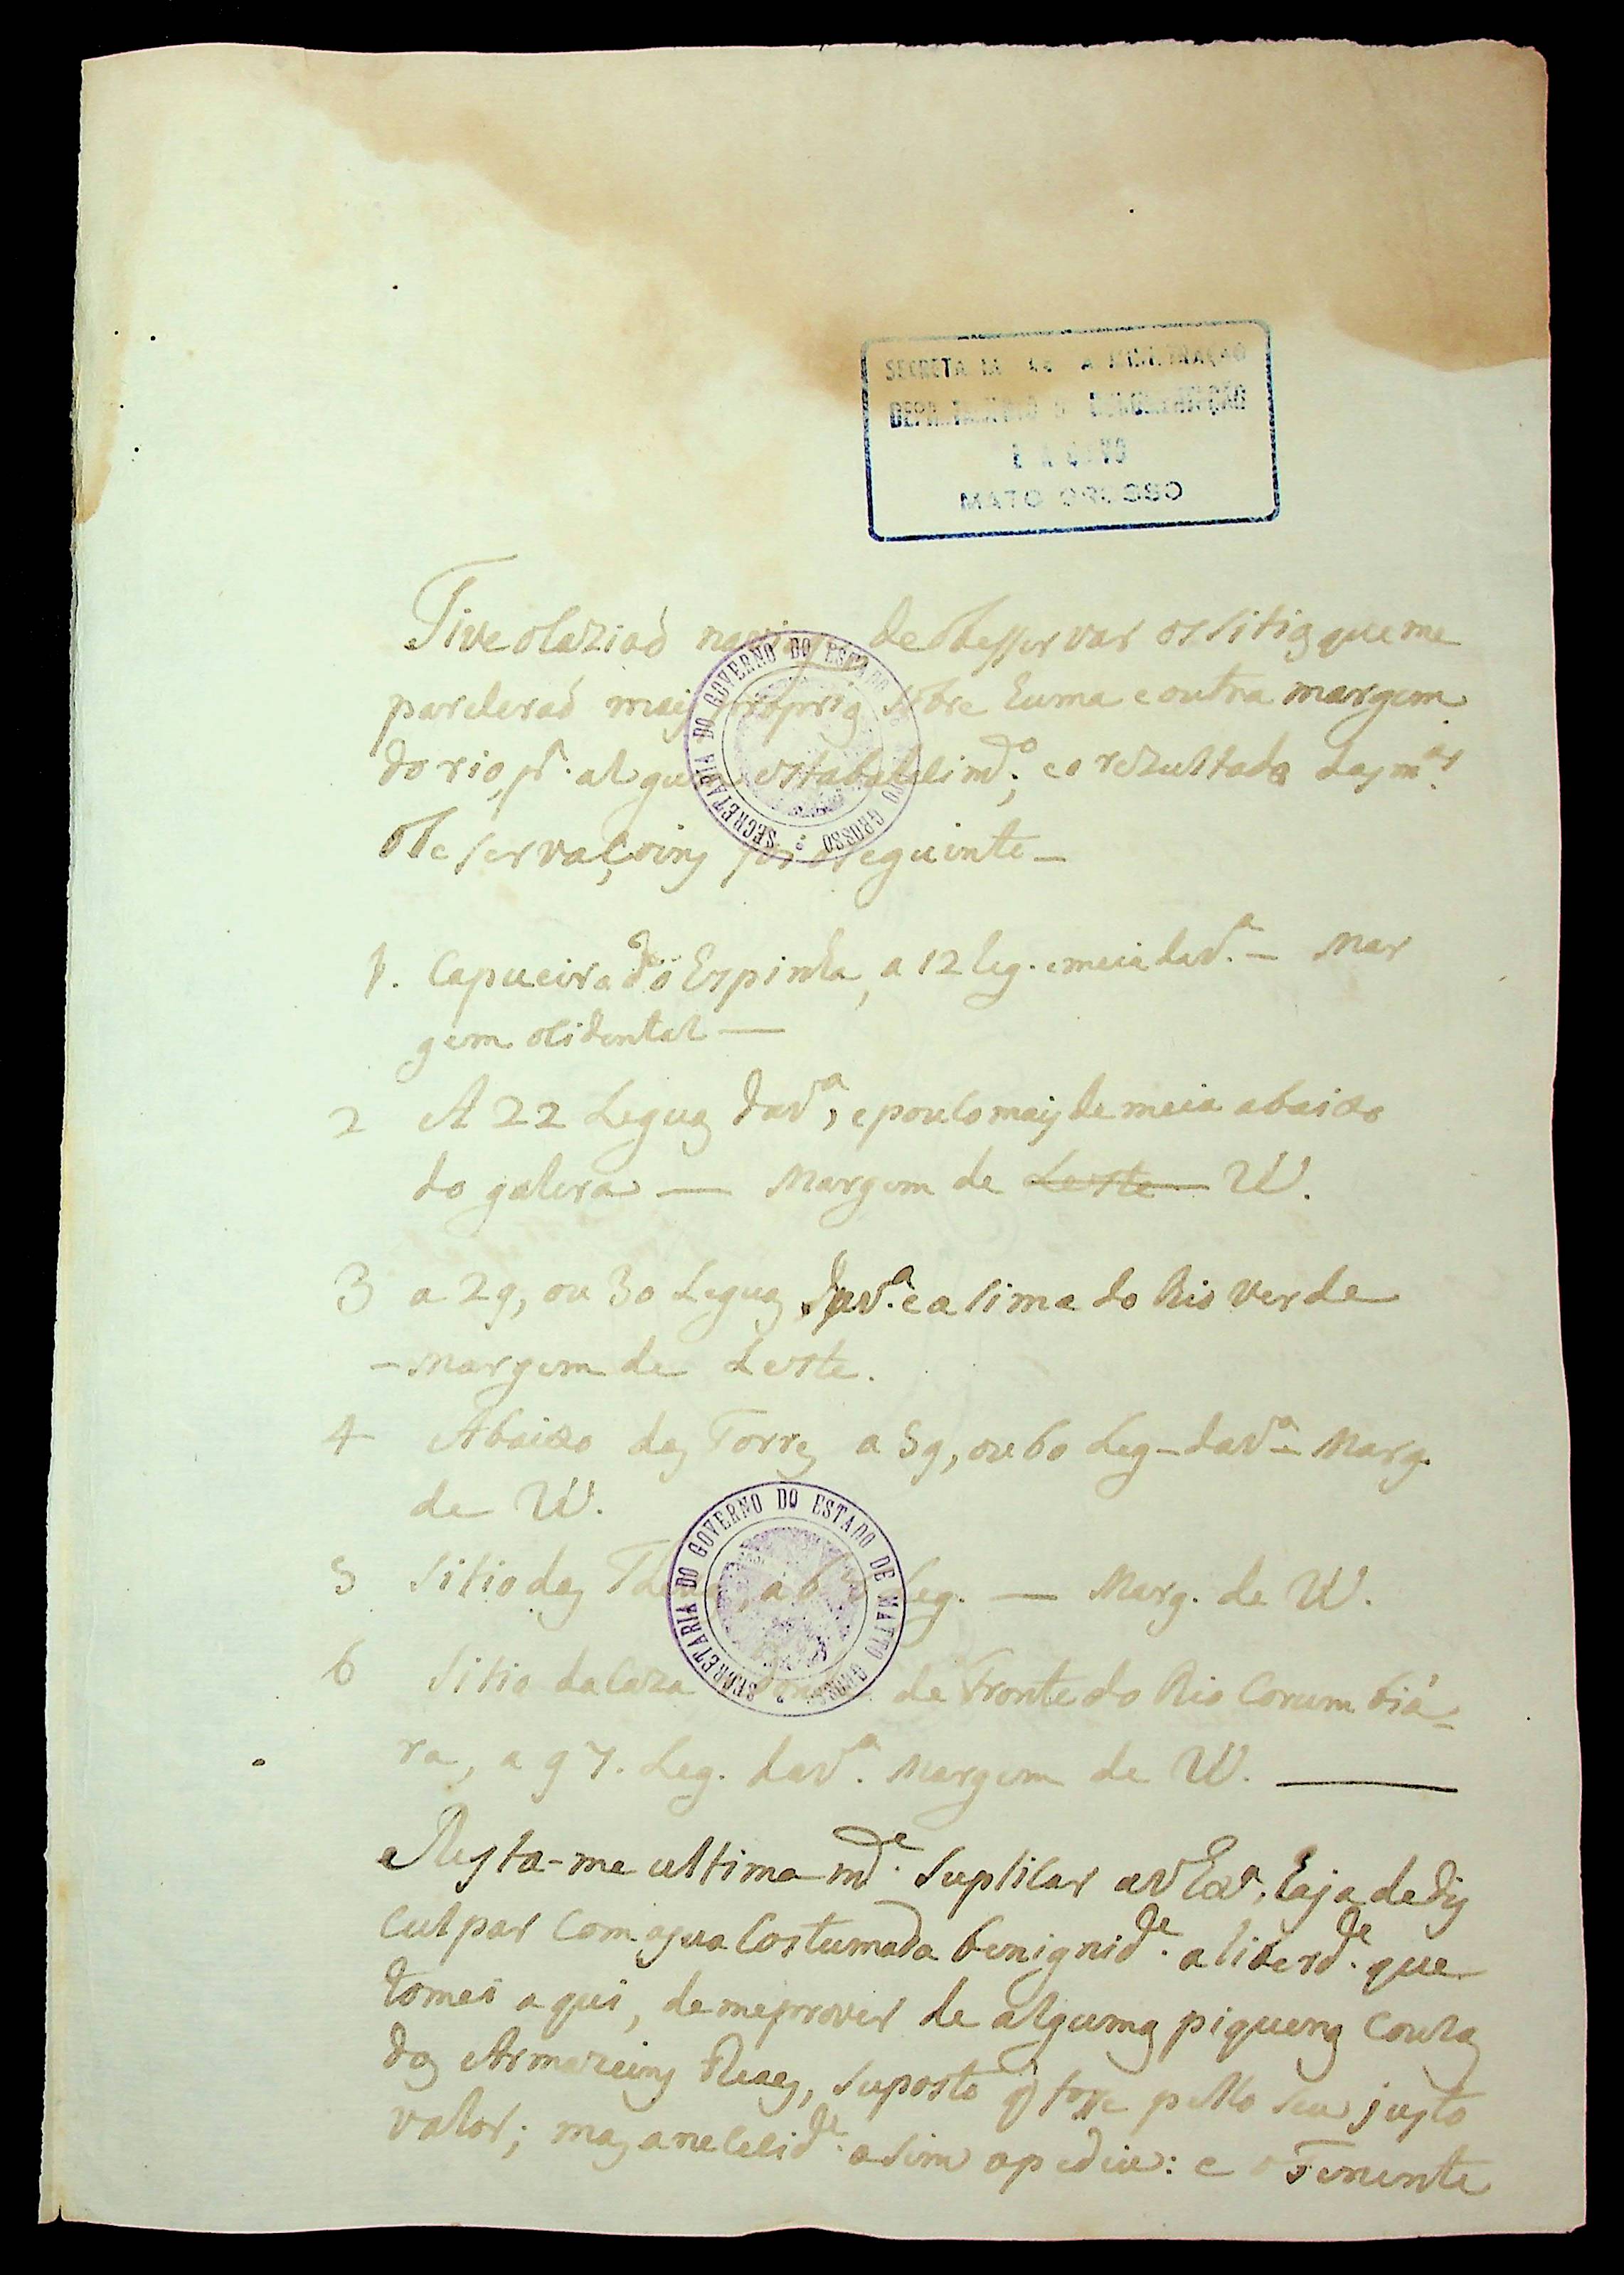 SECRETARIA DE ADMINISTRAÇÃO
DEPARTAMENTO D DOCUMENTAÇÃO
E ARQUIVO
MATO GROSSO
Tive oCaziaõ na viagem de Obesservar os Sitios que me
pareCeraõ mais proprios Sobre huma e outra margem
do rio, pª. algum estabeleCimdº., e o rezultado das mªˢ.
Obeservaçoins foi o Seguinte —
SECRETARIA DO GOVERNO DO ESTADO DE MATTO GROSSO
1. Capueira do Espinha, a 12 leg. e meia da Vª. — Mar
gem oCidental —
2 A 22 Leguas da Vª, e pouCo mais de meia abaixo
do galera — Margem de Leste W.
3 a 29, ou 30 Leguas da Vª. e aSima do Rio Verde
— Margem de Leste.
4 Abaixo das Torres a 59, ou 60 Leg — da Vª — Marg.
de W.
5 Sitio das Leg. — Marg. de W.
SECRETARIA DO GOVERNO DO ESTADO DE MATTO GROSSO
6 Sitio da Caza de Fronte do Rio Corumbiá-
ra, a 97. Leg. da Vª. Margem de W. —
Resta-me ultimamᵈᵉ. SupliCar a V Exª. haja de dis
culpar Com a sua Costumada benignidᵉ. a liberdᵉ. que
tomei aqui, de me prover de algumas piquenas Couzas
dos Armazeins Reaes, Suposto q̃ fosse pello Seu justo
valor; mas a neCeCidᵉ. aSim o pediu: e o Tenente